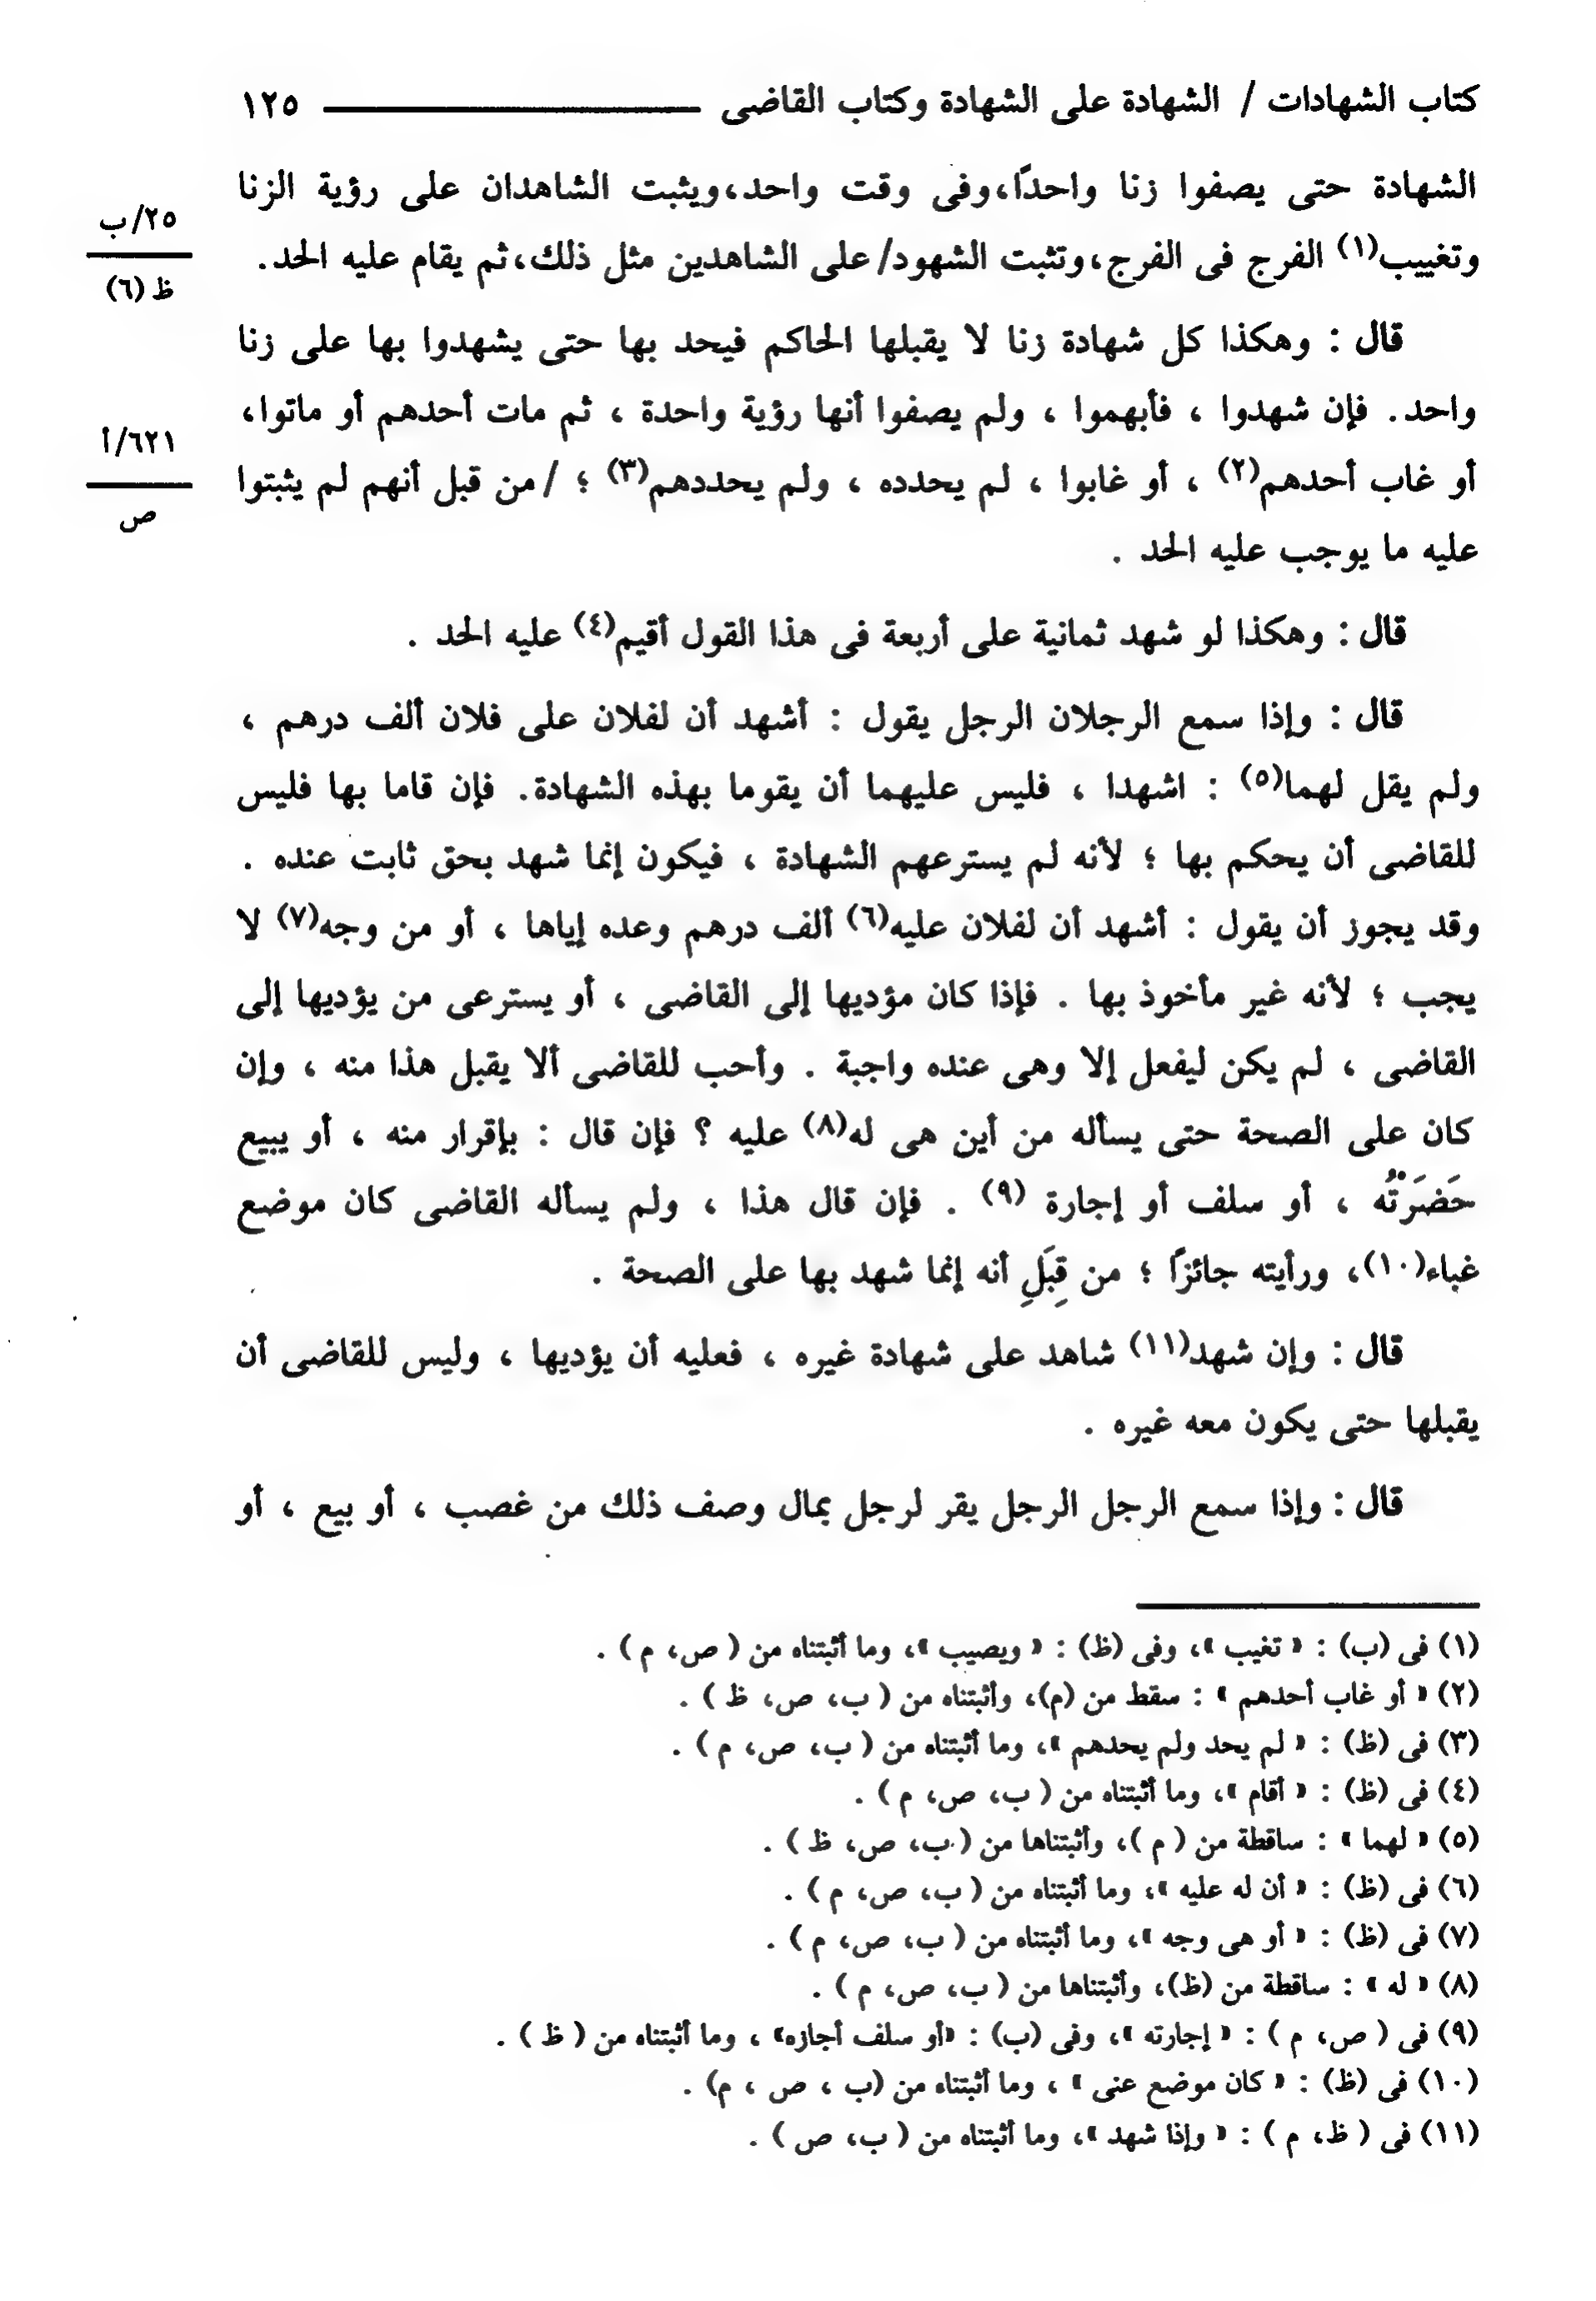 كتاب الشهادات / الشهادة على الشهادة وكتاب القاضى ١٢٥
الشهادة حتى يصفوا زنا واحدًا،وفى وقت واحد،ويثبت الشاهدان على رؤية الزنا
٢٥/ب
وتغييب(١) الفرج فى الفرج،وتثبت الشهود/على الشاهدين مثل ذلك،ثم يقام عليه الحد.
ظ (٦)
قال : وهكذا كل شهادة زنا لا يقبلها الحاكم فيحد بها حتى يشهدوا بها على زنا
واحد. فإن شهدوا ، فأبهموا ، ولم يصفوا أنها رؤية واحدة ، ثم مات أحدهم أو ماتوا،
٦٢١/أ
أو غاب أحدهم(٢) ، أو غابوا ، لم يحدده ، ولم يحددهم(٣) ؛ /من قبل أنهم لم يثبتوا
ص
عليه ما يوجب عليه الحد .
قال : وهكذا لو شهد ثمانية على أربعة فى هذا القول أقيم(٤) عليه الحد .
قال : وإذا سمع الرجلان الرجل يقول : أشهد أن لفلان على فلان ألف درهم ،
ولم يقل لهما(٥) : اشهدا ، فليس عليهما أن يقوما بهذه الشهادة. فإن قاما بها فليس
للقاضى أن يحكم بها ؛ لأنه لم يسترعهم الشهادة ، فيكون إنما شهد بحق ثابت عنده .
وقد يجوز أن يقول : أشهد أن لفلان عليه(٦) ألف درهم وعده إياها ، أو من وجه(٧) لا
يجب ؛ لأنه غير مأخوذ بها . فإذا كان مؤديها إلى القاضى ، أو يسترعى من يؤديها إلى
القاضى ، لم يكن ليفعل إلا وهى عنده واجبة . وأحب للقاضى ألا يقبل هذا منه ، وإن
كان على الصحة حتى يسأله من أين هى له(٨) عليه ؟ فإن قال : بإقرار منه ، أو ببيع
حَضَرْتُه ، أو سلف أو إجارة (٩) . فإن قال هذا ، ولم يسأله القاضى كان موضع
غباء(١٠)، ورأيته جائزًا ؛ من قِبَلِ أنه إنما شهد بها على الصحة .
قال : وإن شهد(١١) شاهد على شهادة غيره ، فعليه أن يؤديها ، وليس للقاضى أن
يقبلها حتى يكون معه غيره .
قال : وإذا سمع الرجل الرجل يقر لرجل بمال وصف ذلك من غصب ، أو بيع ، أو
(١) فى (ب) : « تغيب »، وفى (ظ) : « ويصيب »، وما أثبتناه من ( ص، م ) .
(٢) « أو غاب أحدهم » : سقط من (م)، وأثبتناه من ( ب، ص، ظ ) .
(٣) فى (ظ) : « لم يحد ولم يحدهم »، وما أثبتناه من ( ب، ص، م ) .
(٤) فى (ظ) : « أقام »، وما أثبتناه من ( ب، ص، م ) .
(٥) « لهما » : ساقطة من ( م )، وأثبتناها من ( ب، ص، ظ ) .
(٦) فى (ظ) : « أن له عليه »، وما أثبتناه من ( ب، ص، م ) .
(٧) فى (ظ) : « أو هى وجه »، وما أثبتناه من ( ب، ص، م ) .
(٨) « له » : ساقطة من (ظ)، وأثبتناها من ( ب، ص، م ) .
(٩) فى ( ص، م ) : « إجارته »، وفى (ب) : «أو سلف أجازه» ، وما أثبتناه من ( ظ ) .
(١٠) فى (ظ) : « كان موضع عنى » ، وما أثبتناه من (ب ، ص ، م) .
(١١) فى ( ظ، م ) : « وإذا شهد »، وما أثبتناه من ( ب، ص ) .